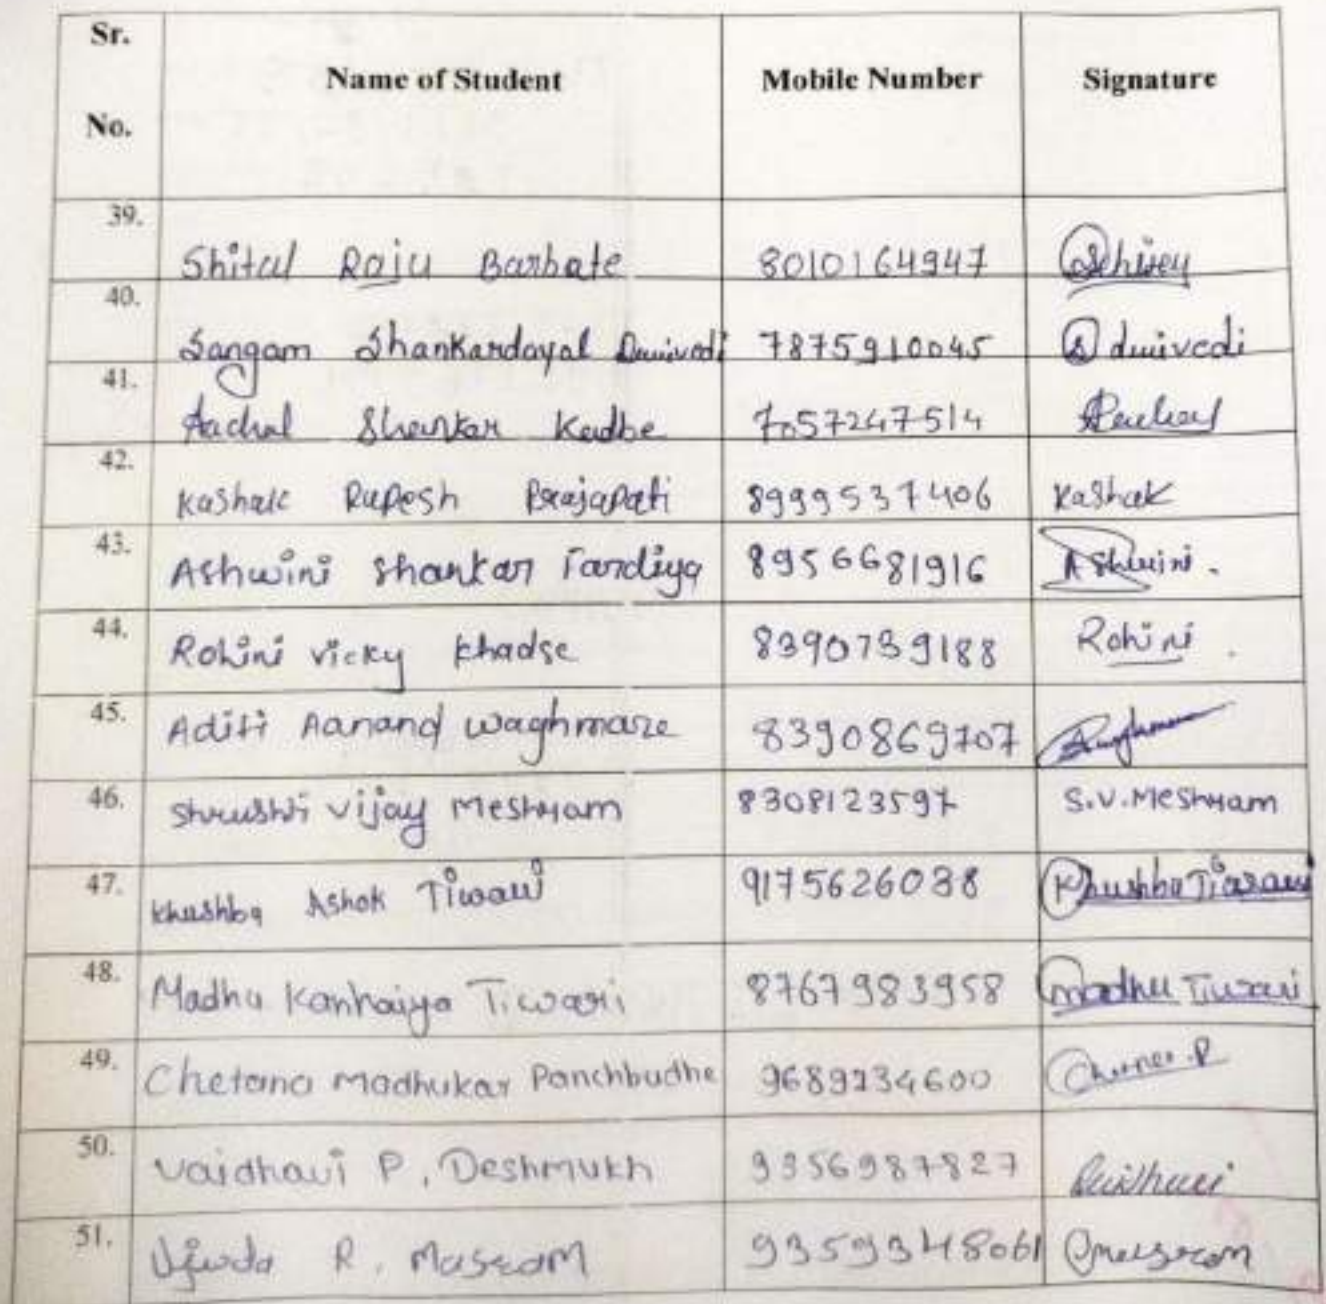 Sr. No. Name of Student Mobile Number Signature
39. Shital Raju Barhate 8010164947
40. Sangam Shankardayal Dwivedi 7875910045 S dwivedi
41. Aachal Shankar Kadbe 7057247514 Aachal
42. Kashak Rupesh Prajapati 8999537406 Kashak
43. Ashwini Shankar Tandiya 8956681916 Ashwini.
44. Rohini vicky khadse 8390739188 Rohini.
45. Aditi Aanand waghmare 8390869707
46. Shrushti Vijay Meshram 8308123597 S.V.Meshram
47. Khushbu Ashok Tiwari 9175626038 Khushbu Tiwari
48. Madhu Kanhaiya Tiwari 8767983958 Madhu Tiwari
49. Chetana Madhukar Panchbudhe 9689234600
50. Vaidhavi P. Deshmukh 9356987827 Vaidhavi
51. R. Masram 9359348061